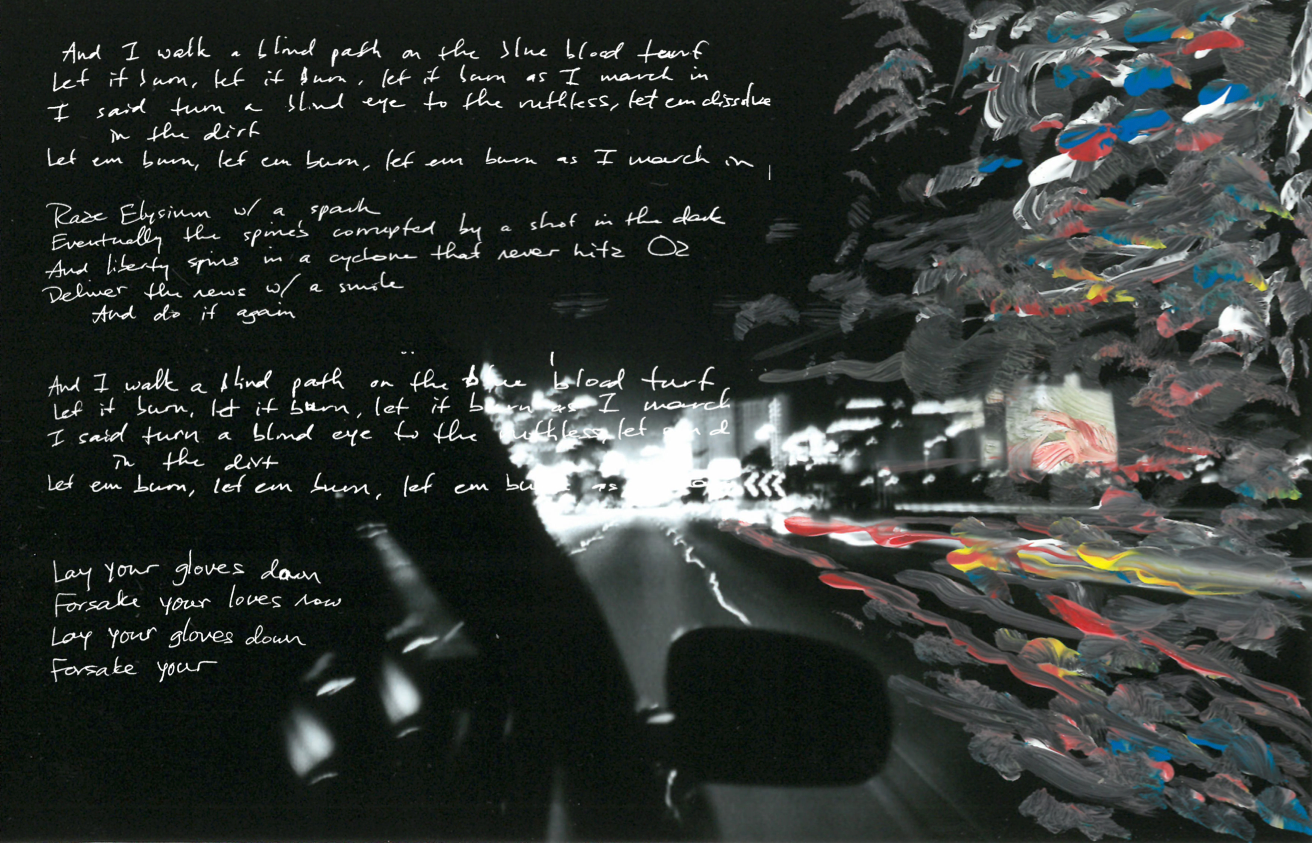 And I walk a blind path on the blue blood turf
Let it burn, let it burn, let it burn as I march in
I said turn a blind eye to the ruthless, let em dissolve
in the dirt
Let em burn, let em burn, let em burn as I march in
Raze Elysium w/ a spark
Eventually the spine's corrupted by a shot in the dark
And liberty spins in a cyclone that never hits Oz
Deliver the news w/ a smile
And do it again
And I walk a blind path on the blue blood turf
Let it burn, let it burn, let it burn as I march
I said turn a blind eye to the ruthless, let
in the dirt
Let em burn, let em burn, let em
Lay your gloves down
Forsake your loves now
Lay your gloves down
Forsake your